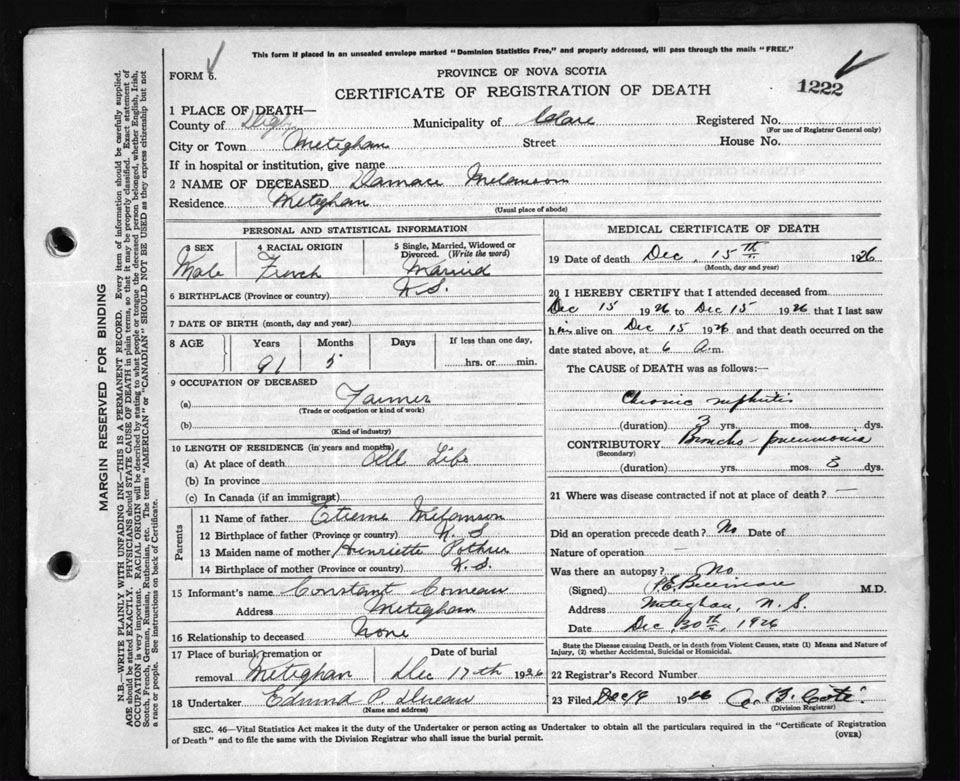 This form if placed in an unsealed envelope marked "Dominion Statistics Free," and properly addressed, will pass through the mails "FREE."
FORM 6.
PROVINCE OF NOVA SCOTIA
1222
CERTIFICATE OF REGISTRATION OF DEATH
1 PLACE OF DEATH—
County of Digby Municipality of Clare Registered No.
(For use of Registrar General only)
City or Town Meteghan Street House No.
If in hospital or institution, give name
2 NAME OF DECEASED Damace Melanson
Residence Meteghan
(Usual place of abode)
PERSONAL AND STATISTICAL INFORMATION
3 SEX 4 RACIAL ORIGIN 5 Single, Married, Widowed or Divorced. (Write the word)
Male French Married
6 BIRTHPLACE (Province or country) N.S.
7 DATE OF BIRTH (month, day and year)
8 AGE Years Months Days If less than one day,
91 5 hrs. or min.
9 OCCUPATION OF DECEASED
(a) Farmer
(Trade or occupation or kind of work)
(b)
(Kind of industry)
10 LENGTH OF RESIDENCE (in years and months)
(a) At place of death All Life
(b) In province
(c) In Canada (if an immigrant)
Parents
11 Name of father Etienne Melanson
12 Birthplace of father (Province or country) N.S
13 Maiden name of mother Henriette Pothier
14 Birthplace of mother (Province or country) N.S.
15 Informant's name Constant Comeau
Address Meteghan
16 Relationship to deceased None
17 Place of burial, cremation or removal Meteghan Date of burial Dec 17th 1926
18 Undertaker Edmund P.
(Name and address)
MEDICAL CERTIFICATE OF DEATH
19 Date of death Dec. 15th 1926
(Month, day and year)
20 I HEREBY CERTIFY that I attended deceased from
Dec 15 1926 to Dec 15 1926 that I last saw
him alive on Dec 15 1926 and that death occurred on the
date stated above, at 6 a.m.
The CAUSE of DEATH was as follows:—
Chronic nephritis
(duration) 3 yrs. mos. dys.
CONTRIBUTORY Broncho-pneumonia
(Secondary)
(duration) yrs. mos. 3 dys.
21 Where was disease contracted if not at place of death? —
Did an operation precede death? No Date of
Nature of operation —
Was there an autopsy? No
(Signed) P.E. M.D.
Address Meteghan, N.S.
Date Dec, 30th, 1926
State the Disease causing Death, or in death from Violent Causes, state (1) Means and Nature of
Injury, (2) whether Accidental, Suicidal or Homicidal.
22 Registrar's Record Number
23 Filed Dec 19 1926
(Division Registrar)
SEC. 46—Vital Statistics Act makes it the duty of the Undertaker or person acting as Undertaker to obtain all the particulars required in the "Certificate of Registration
of Death" and to file the same with the Division Registrar who shall issue the burial permit.
(OVER)
MARGIN RESERVED FOR BINDING
N.B.—WRITE PLAINLY WITH UNFADING INK—THIS IS A PERMANENT RECORD. Every item of information should be carefully supplied.
AGE should be stated EXACTLY. PHYSICIANS should STATE CAUSE OF DEATH in plain terms, so that it may be properly classified. Exact statement of
OCCUPATION is very important. RACIAL ORIGIN will be described by stating to what people or tongue the deceased person belonged, whether English, Irish,
Scotch, French, German, Russian, Ruthenian, etc. The terms "AMERICAN" or "CANADIAN" SHOULD NOT BE USED as they express citizenship but not
a race or people. See instructions on back of Certificate.